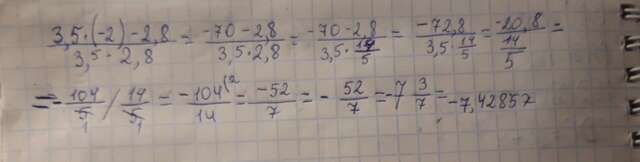 (3,5·(-2)-2,8)/(3,5·2,8) = (-70-2,8)/(3,5·2,8) = (-70-2,8)/(3,5·14/5) = (-72,8)/(3,5·14/5) = (-20,8)/(14/5) =
= -104/5 / 14/5 = -104/14 = -52/7 = - 52/7 = -7 3/7 = -7,42857